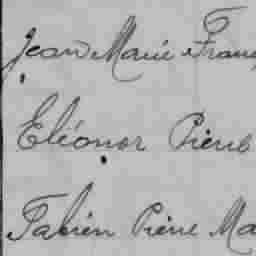 Jean Marie Franç
Eléonor Pierre
Fabien Pierre Ma